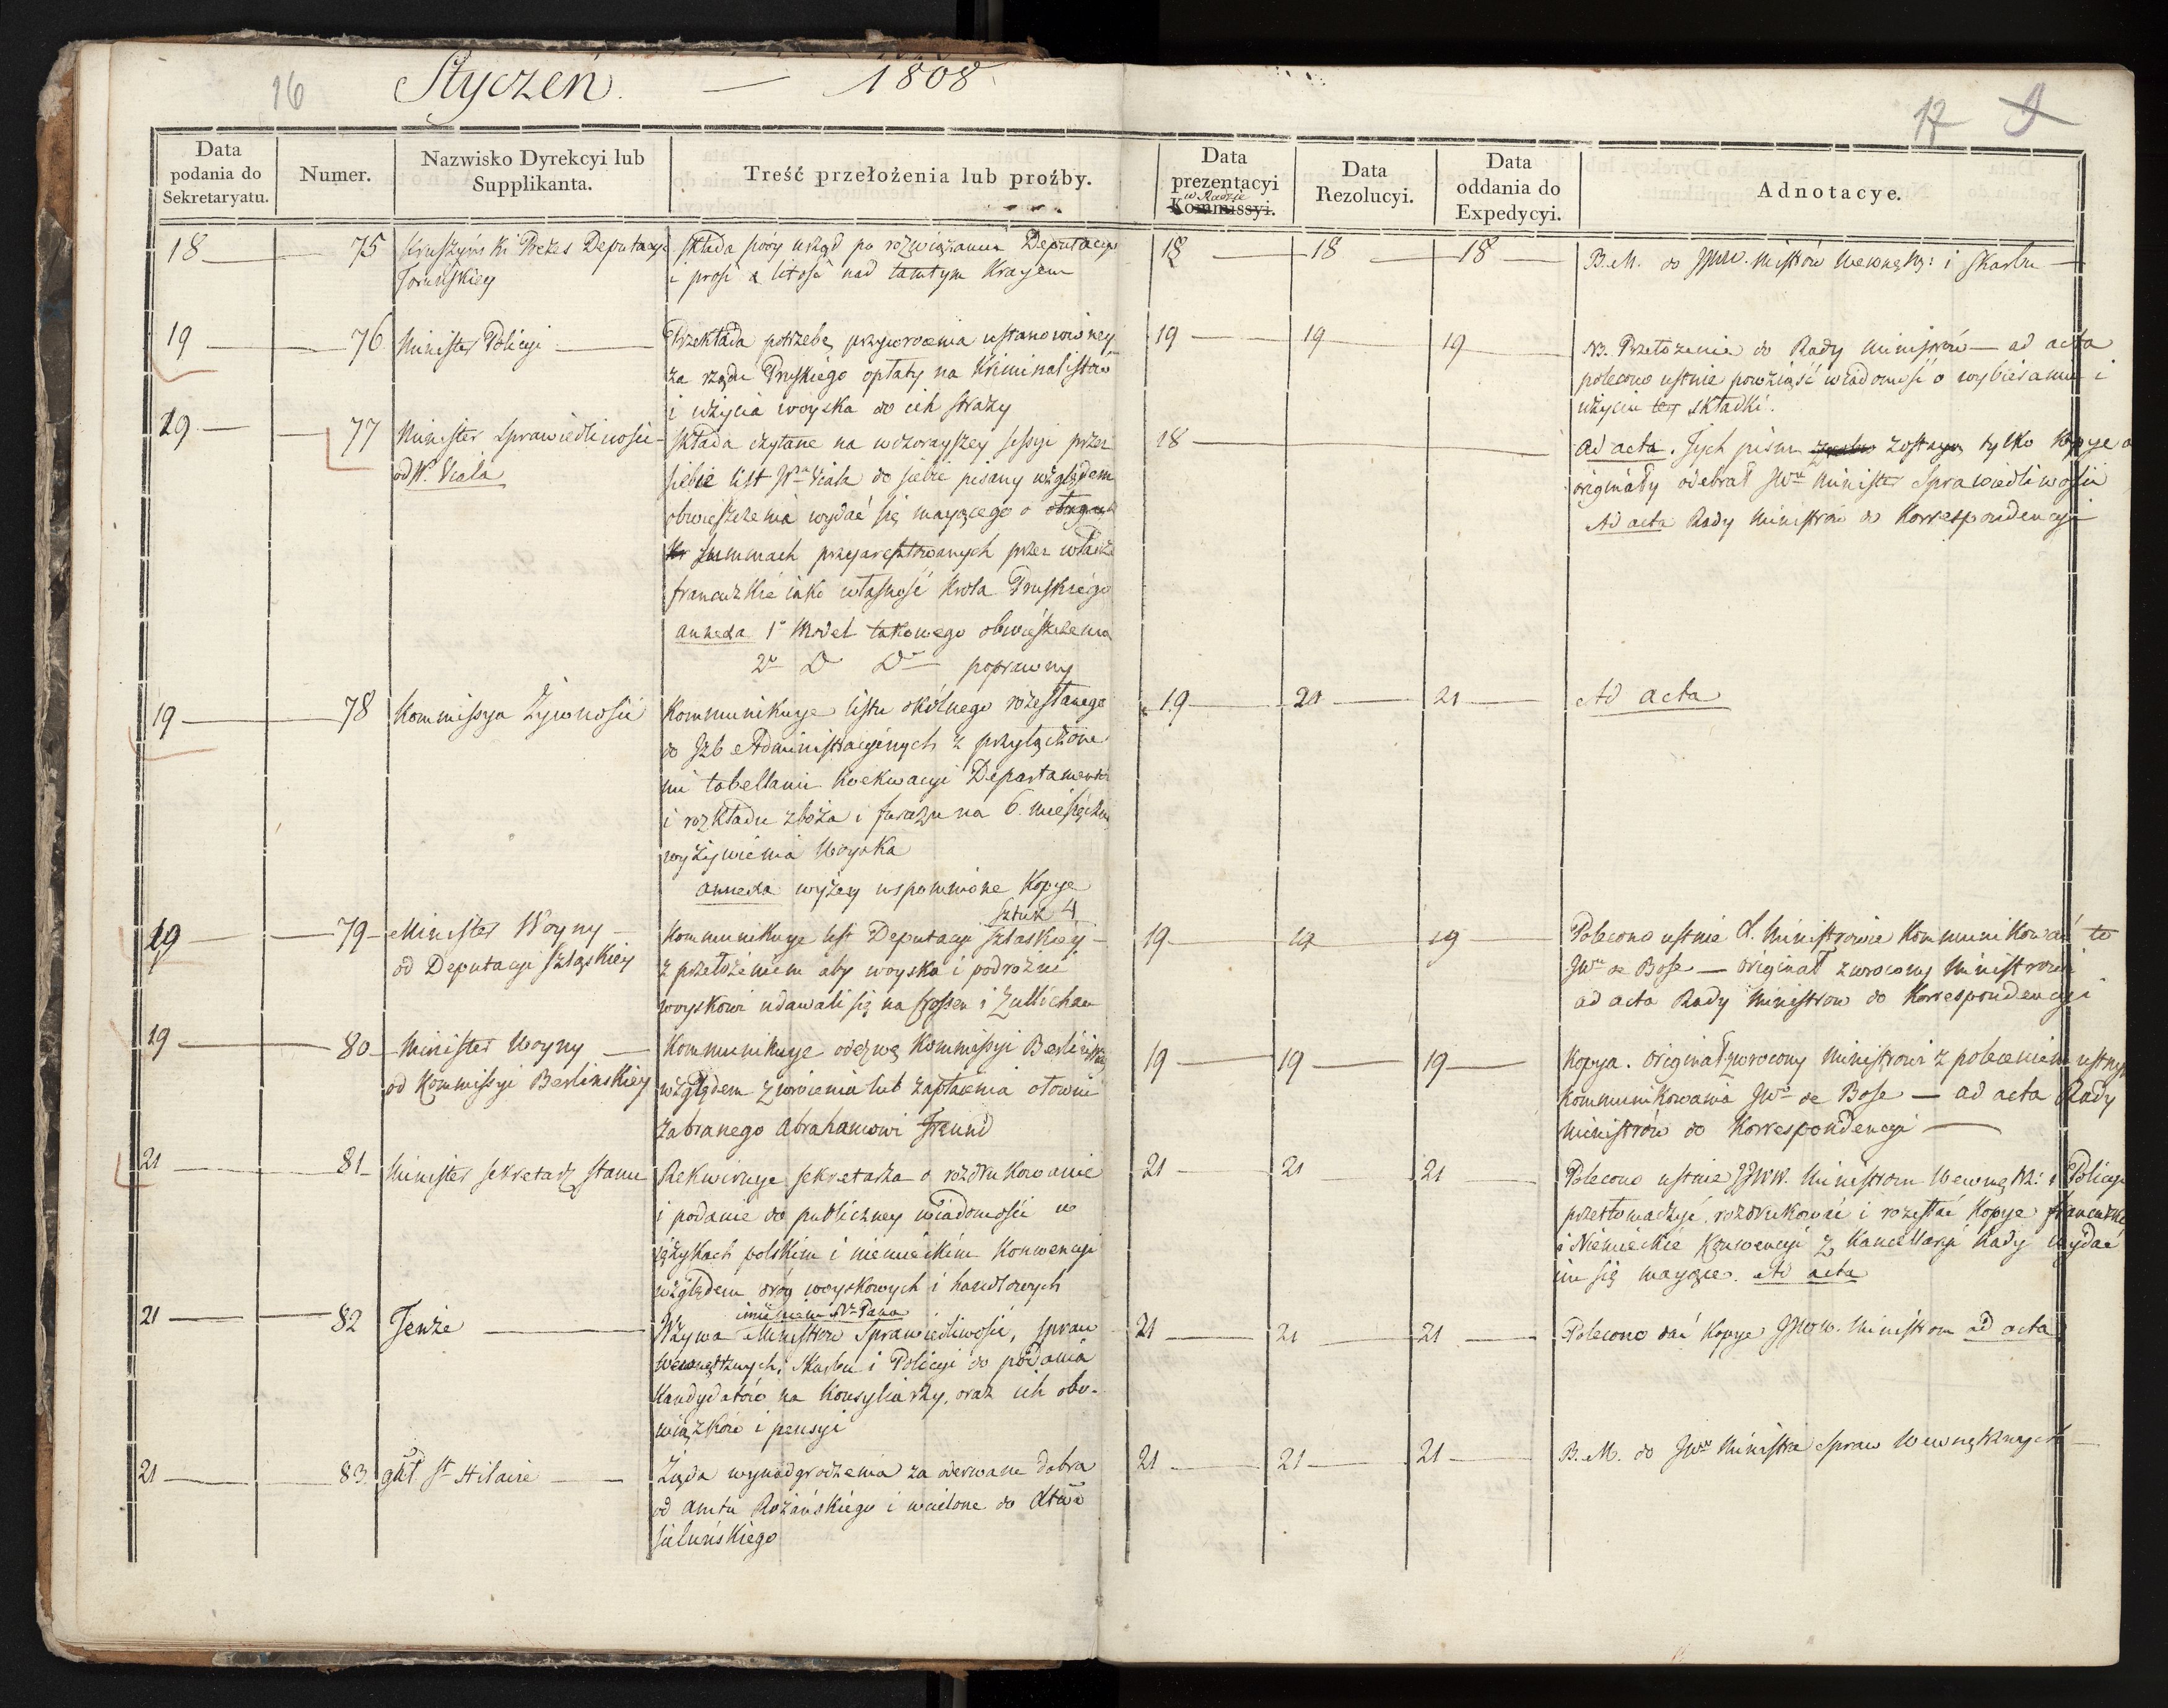 16 Styczeń. — 1808
17 9
Data podania do Sekretaryatu.
Numer.
Nazwisko Dyrekcyi lub Supplikanta.
Treść przełożenia lub proźby.
Data prezentacyi w Radzie Kommissyi.
Data Rezolucyi.
Data oddania do Expedycyi.
Adnotacye.
18 — 75 Kruszyński Prezes Deputacyi
Toruńskiey
Składa swóy urząd po rozwiązaniu Deputacyi
i prosi o litość nad tamtym Kraiem
18 — 18 — 18 —
B. M. do JJWW. Mistrów Wewnętrz: i Skarbu —
19 — 76 Minister Policyi —
Przekłada potrzebę przywrocenia ustanowioney
za rządu Pruskiego opłaty na Kriminalistów
i użycia woyska do ich straży
19 — 19 — 19 —
NB. Przełożenie do Rady Ministrów — ad acta
polecono ustnie powziąść wiadomość o wybieraniu i
użyciu tey składki.
19 — 77 Minister Sprawiedliwości —
od W. Viala
składa czytane na wczorayszey sessyi przez
siebie list Wo Viala do siebie pisany względem
obwieszczenia wydać się maiącego o
summach przyaresztowanych przez władze
francuzkie iako własność Krola Pruskiego
annexa 1o Model takowego obwieszczenia
2o Do Do — poprawny
18 —
Ad acta. Tych pism zostaią tylko kopye a
originały odebrał JWny Minister Sprawiedliwości
Ad acta Rady Ministrów do Korrespondencyi
19 — 78 Kommissya Żywności
Kommunikuye listu okólnego rozesłanego
do Izb Administracyinych z przyłączone
mi tabellami Koekwacyi Departamentów
i rozkładu zboża i furażu na 6. miesięczne
wyżywienia Woyska
annexa wyżey wspomnione Kopye
Sztuk 4
19 — 20 — 21 —
Ad acta
19 — 79 — Minister Woyny —
od Deputacyi Szląskiey
Kommunikuye list Deputacyi Szląskiey —
z przełożeniem aby woyska i podrożni
woyskowi udawali się na Crossen i Zullichau
19 — 19 — 19 —
Polecono ustnie d. Ministrowi Kommunikować to
JWu de Bose — originał zwrocony Ministrowi
ad acta Rady Ministrow do Korrespondencyi
19 — 80 — Minister Woyny —
od Kommissyi Berlinskiey
Kommunikuye odezwę Kommissyi Berlińskiey
względem zwrócenia lub zapłacenia ołowiu
zabranego Abrahamowi Freund
19 — 19 — 19 —
Kopya. Originał zwrocony Ministrowi z poleceniem ustnym
Kommunikowania JWu de Bose — ad acta Rady
Ministrów do Korrespondencyi —
21 — 81 — Minister Sekretarz Stanu
Rekwiruye Sekretarza o rozdrukowanie
i podanie do publiczney wiadomości w
ięzykach polskim i niemieckim Konwencyi
względem dróg woyskowych i handlowych
21 — 21 — 21 —
Polecono ustnie JJWW. Ministrom Wewnętrz: i Policyi
przetłomaczyć, rozdrukować i rozesłać Kopye francuzkie
i Niemieckie Konwencyi z Kancellaryi Rady wydać
im się maiące. Ad acta
21 — 82 Tenże —
imieniem No Pana
Wzywa Ministrów Sprawiedliwości, spraw
wewnętrznych, Skarbu i Policyi do podania
Kandydatów na Konsyliarzy, oraz ich obo-
wiązków i pensyi
21 — 21 — 21 —
Polecono dać Kopye JJWW. Ministrom ad acta
21 — 83 gnł. St Hilaire —
Żąda wynadgrodzenia za oderwane dobra
od amtu Rożańskiego i wcielone do
Sieluńskiego
21 — 21 — 21 —
B. M. do JWo Ministra Spraw Wewnętrznych —